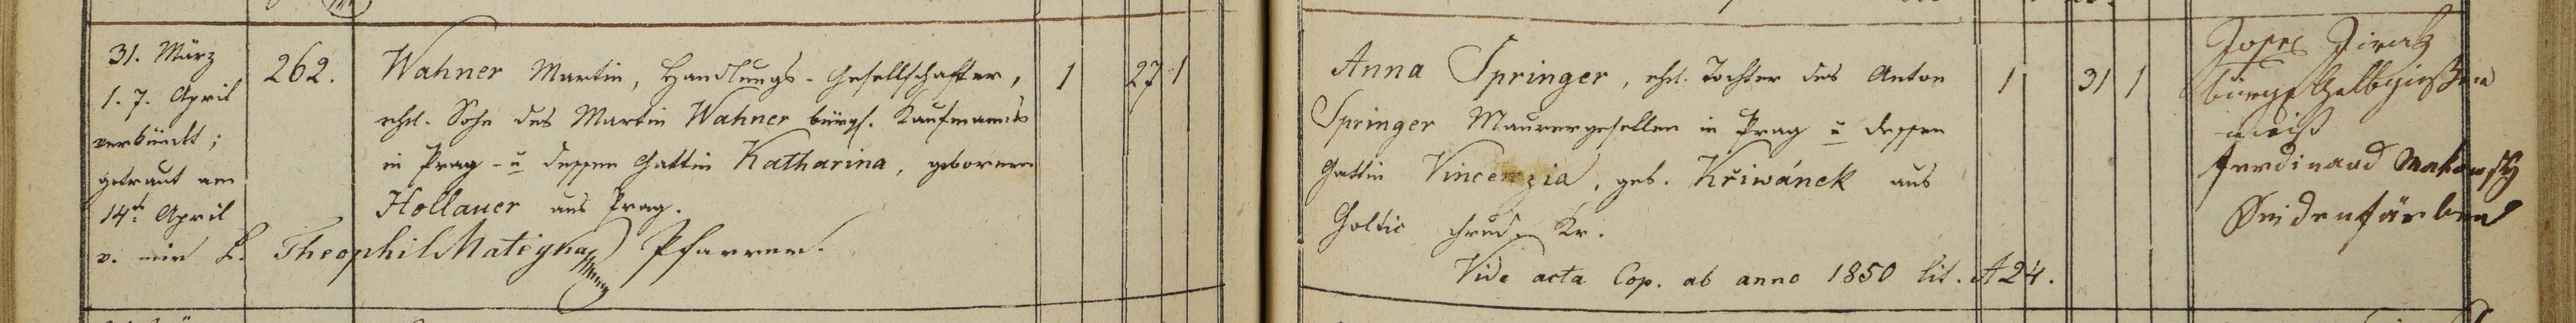 31. März
1. 7. April
verkündt;
getraut am
14t. April
v. mir P. Theophil Mategka Pfarrer.
262.
Wahner Martin, Handlungs-Gesellschafter,
ehel. Sohn des Martin Wahner bürgl. Kaufmanns
in Prag - u dessen Gattin Katharina, geborenen
Hollauer aus Prag.
1
27
1
Anna Springer, ehel. Tochter des Anton
Springer Maurergesellen in Prag u dessen
Gattin Vincenzia, geb. Křiwánek aus
Holtic chrud. Kr.
Vide acta Cop. ab anno 1850 lit. A 24.
1
31
1
Josef
bürgl Gelbgießer
Ferdinand Makowsky
Seidenfärber